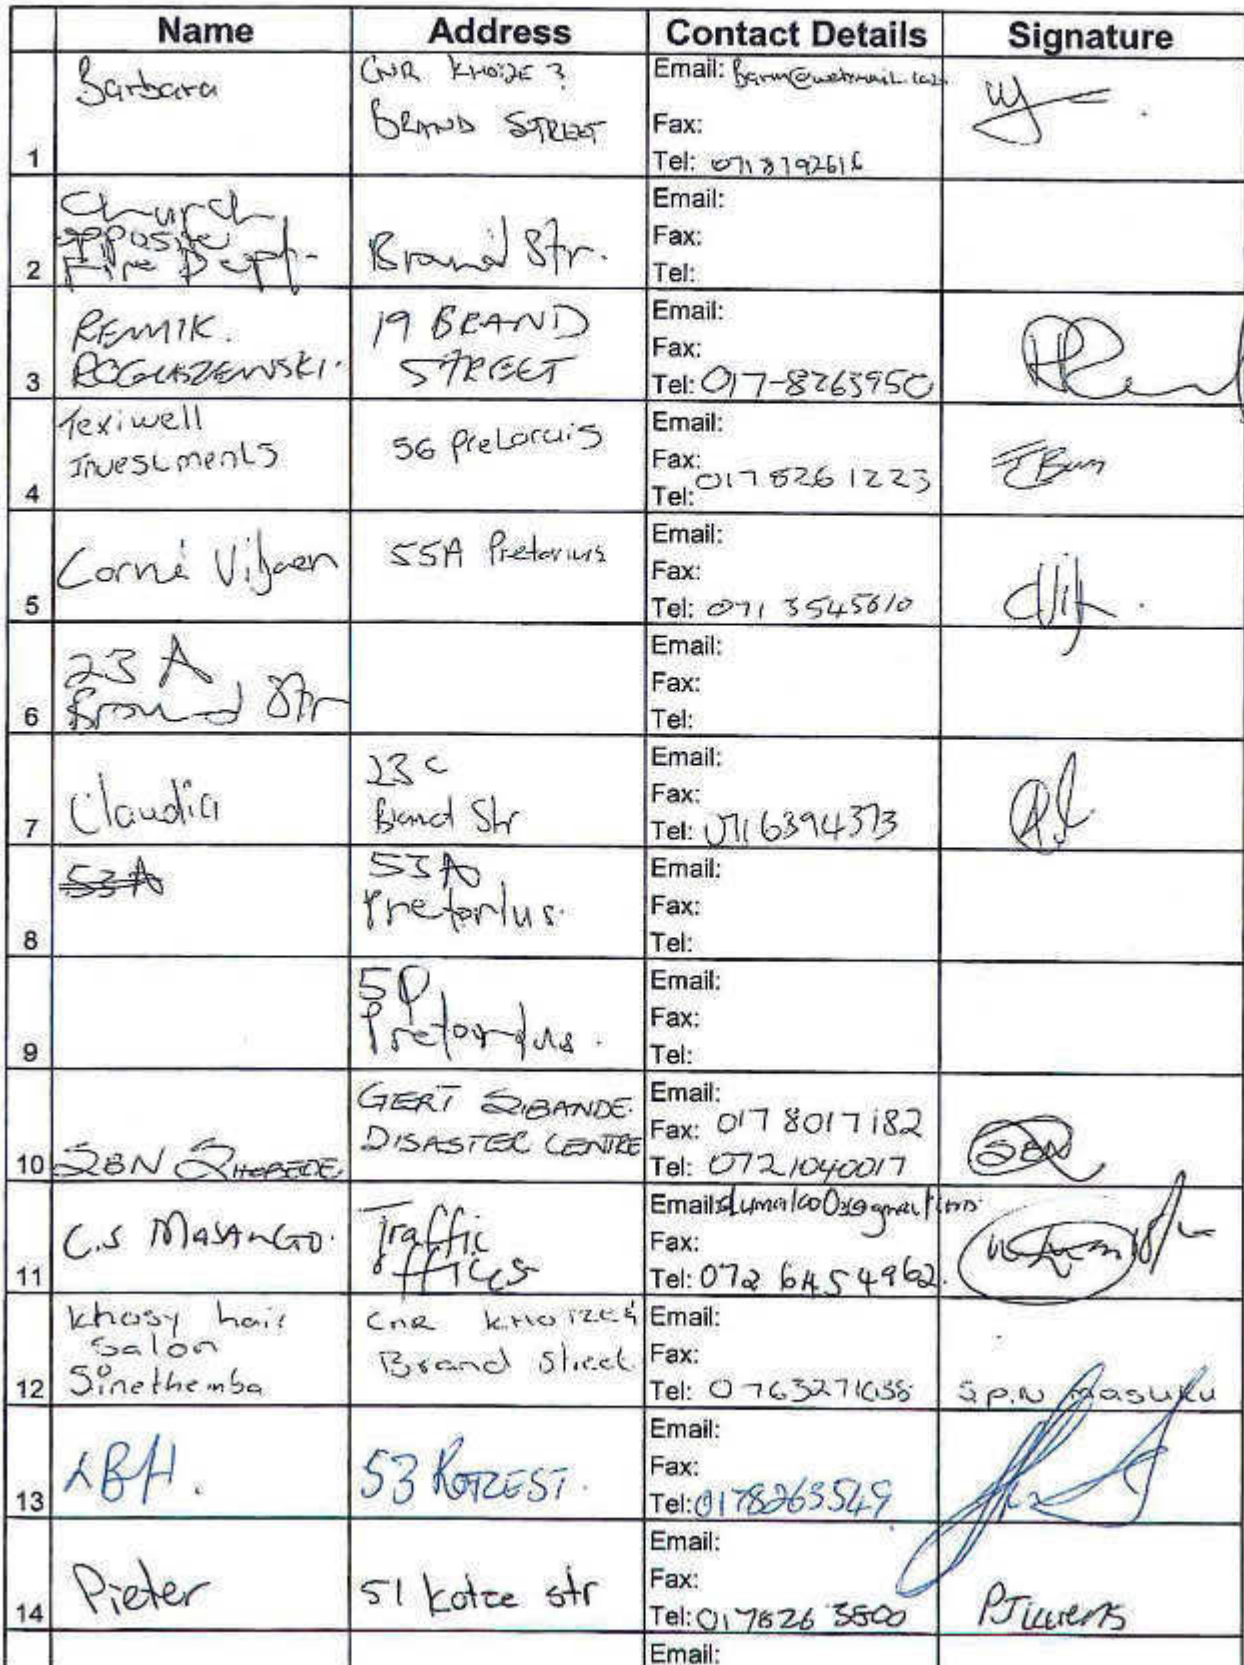 Name Address Contact Details Signature
1
Barbara
CNR KHOIZE &
BRAND STREET
Email:
Fax:
Tel: 0718792616
2
Church
opposite
Fire Dept.
Brand Str.
Email:
Fax:
Tel:
3
REMIK.
ROGUSZEWSKI.
19 BRAND
STREET
Email:
Fax:
Tel: 017-8263950
4
Texiwell
Investments
56 Pretoruis
Email:
Fax:
Tel: 0178261223
5
Corné Viljoen
55A Pretorius
Email:
Fax:
Tel: 071 3545610
6
23 A
Brand Str
Email:
Fax:
Tel:
7
Claudia
23 C
Brand Str
Email:
Fax:
Tel: 0716394373
8
53A
53A
Pretorius.
Email:
Fax:
Tel:
9
Pretorius.
Email:
Fax:
Tel:
10
GERT SIBANDE
DISASTER CENTRE
Email:
Fax: 017 8017182
Tel: 0721040017
SBN
11
C.S MASANGO.
Traffic
offices
Email:
Fax:
Tel: 072 6454962.
12
Khosy hair
Salon
Sinethemba
CNR KHOIZE &
Brand Street
Email:
Fax:
Tel:
S.P.N Masuku
13
53 KOTZE ST.
Email:
Fax:
Tel: 0178263549
14
Pieter
51 Kotze str
Email:
Fax:
Tel: 017826 3500
Email: